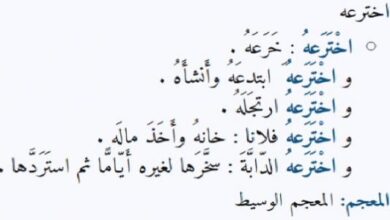 اخترعه
اخْتَرَعهُ : خَرَعَهُ .
و اخْتَرَعهُ َ ابتدعَهُ وأَنشأَهُ .
و اخْتَرَعهُ ارتجَلَهُ .
و اخْتَرَعهُ فلانا : خانهُ وأَخَذَ مالَه .
و اخْتَرَعهُ الدّابَّةَ : سخَّرَها لغيره أَيّامًّا ثم استَردَّها .
المعجم: المعجم الوسيط